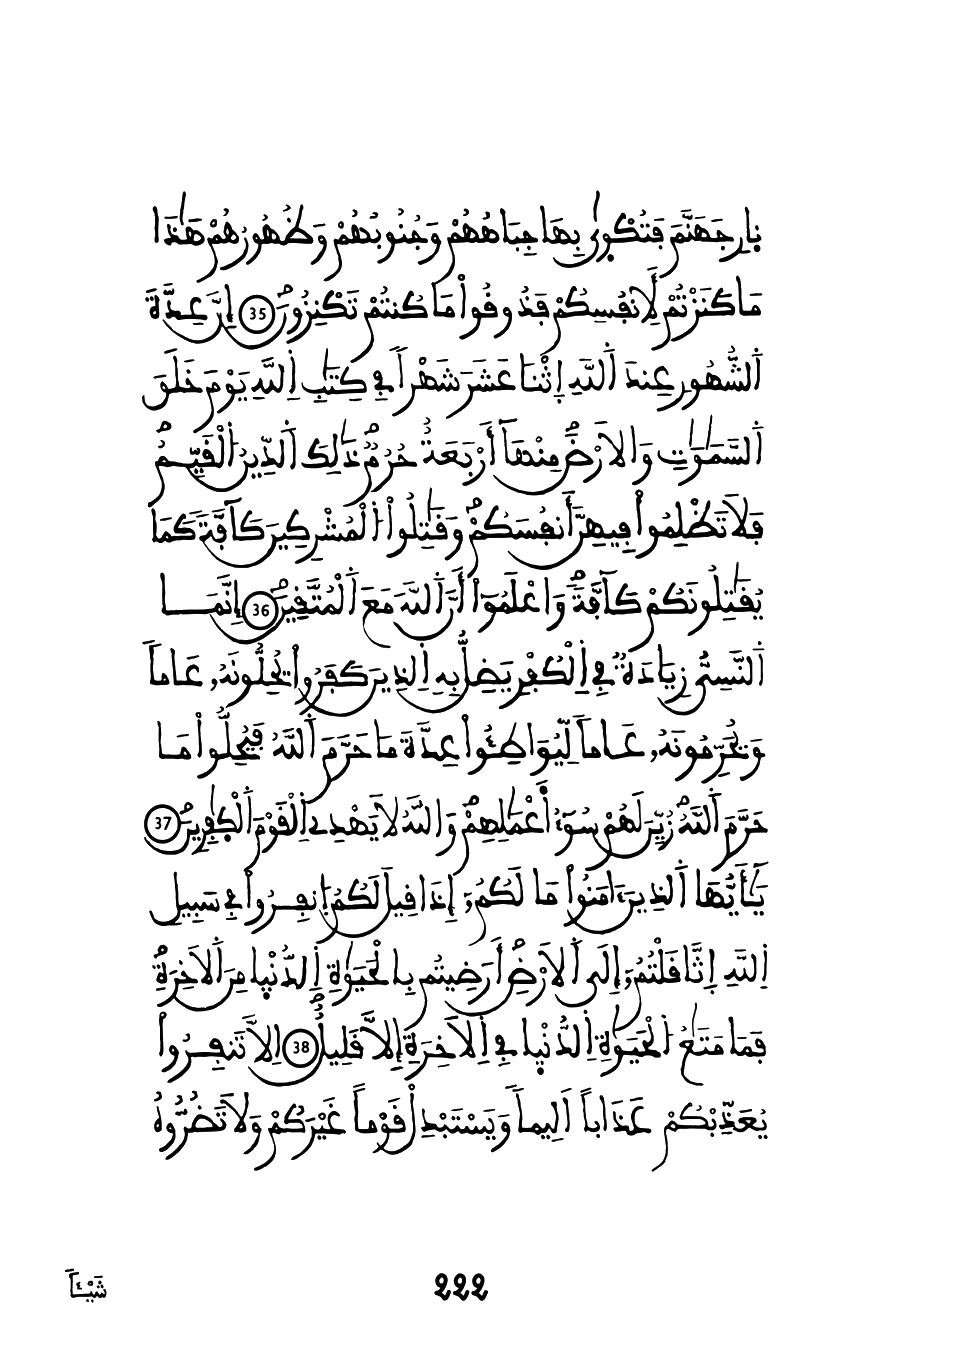 نِارِ جَهَنَّمَ فَتُكْوِىٰ بِهَا جِبَاهُهُمْ وَجُنُوبُهُمْ وَظُهُورُهُمْ هَٰذَا
مَا كَنَزْتُمْ لِأَنفُسِكُمْ فَذُوقُواْ مَا كُنتُمْ تَكْنِزُونَ 35 إِنَّ عِدَّةَ
اَ۬لشُّهُورِ عِندَ اَ۬للَّهِ اِثْنَا عَشَرَ شَهْراٗ فِي كِتَٰبِ اِ۬للَّهِ يَوْمَ خَلَقَ
اَ۬لسَّمَٰوَٰتِ وَالَارْضَ مِنْهَآ أَرْبَعَةٌ حُرُمٞ ذَٰلِكَ اَ۬لدِّينُ اُ۬لْقَيِّمُ
فَلَا تَظْلِمُواْ فِيهِنَّ أَنفُسَكُمْ وَقَٰتِلُواْ اُ۬لْمُشْرِكِينَ كَآفَّةٗ كَمَا
يُقَٰتِلُونَكُمْ كَآفَّةٗ وَاعْلَمُوٓاْ أَنَّ اَ۬للَّهَ مَعَ اَ۬لْمُتَّقِينَ 36 إِنَّمَا
اَ۬لنَّسِيُّ زِيَادَةٞ فِي اِ۬لْكُفْرِ يَضِلُّ بِهِ اِ۬لذِينَ كَفَرُواْ يُحِلُّونَهُۥ عَاماٗ
وَيُحَرِّمُونَهُۥ عَاماٗ لِّيُوَاطِـُٔواْ عِدَّةَ مَا حَرَّمَ اَ۬للَّهُ فَيُحِلُّواْ مَا
حَرَّمَ اَ۬للَّهُ زُيِّنَ لَهُمْ سُوٓءُ أَعْمَٰلِهِمْ وَاللَّهُ لَا يَهْدِے اِ۬لْقَوْمَ اَ۬لْكٰفِرِينَ 37
يَٰٓأَيُّهَا اَ۬لذِينَ ءَامَنُواْ مَا لَكُمُۥٓ إِذَا قِيلَ لَكُمُ اُ۪نفِرُواْ فِي سَبِيلِ
اِ۬للَّهِ اِ۪ثَّاقَلْتُمُۥٓ إِلَى اَ۬لَارْضِ أَرَضِيتُم بِالْحَيَوٰةِ اِ۬لدُّنْيِا مِنَ اَ۬لَاخِرَةِ
فَمَا مَتَٰعُ اُ۬لْحَيَوٰةِ اِ۬لدُّنْيِا فِي اِ۬لَاخِرَةِ إِلَّا قَلِيلٌ 38 اِلَّا تَنفِرُواْ
يُعَذِّبْكُمْ عَذَاباً اَلِيماٗ وَيَسْتَبْدِلْ قَوْماً غَيْرَكُمْ وَلَا تَضُرُّوهُ
شَيْـٔاٗ
222